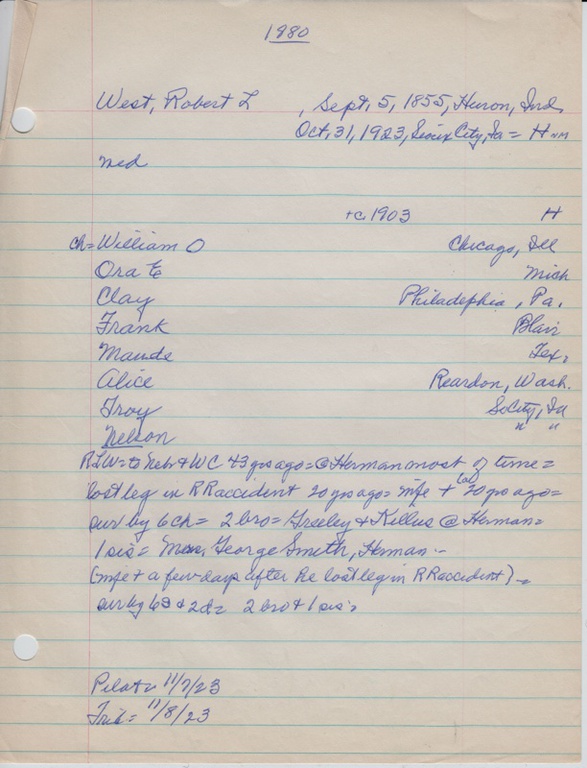 1980
West, Robert L , Sept. 5, 1855, Huron, Ind.
Oct. 31, 1923, Sioux City, Ia = H
md
+c 1903 H
ch = William O Chicago, Ill
Ora E Mich
Clay Philadephia, Pa.
Frank Blair
Maude Tex.
Alice Reardon, Wash.
Troy So City, Ia
Nelson " "
RLW = to Nebr & WC 43 yrs ago = @ Herman most of time =
lost leg in RR accident 20 yrs ago = mfe + (ca) 20 yrs ago =
sur by 6 ch = 2 bro = Greeley & Killus @ Herman =
1 sis = Mrs. George Smith, Herman -
(mfe + a few days after he lost leg in RR accident) =
sur by 6s & 2d = 2 bro + 1 sis =
Pilot = 11/7/23
Trib = 11/8/23